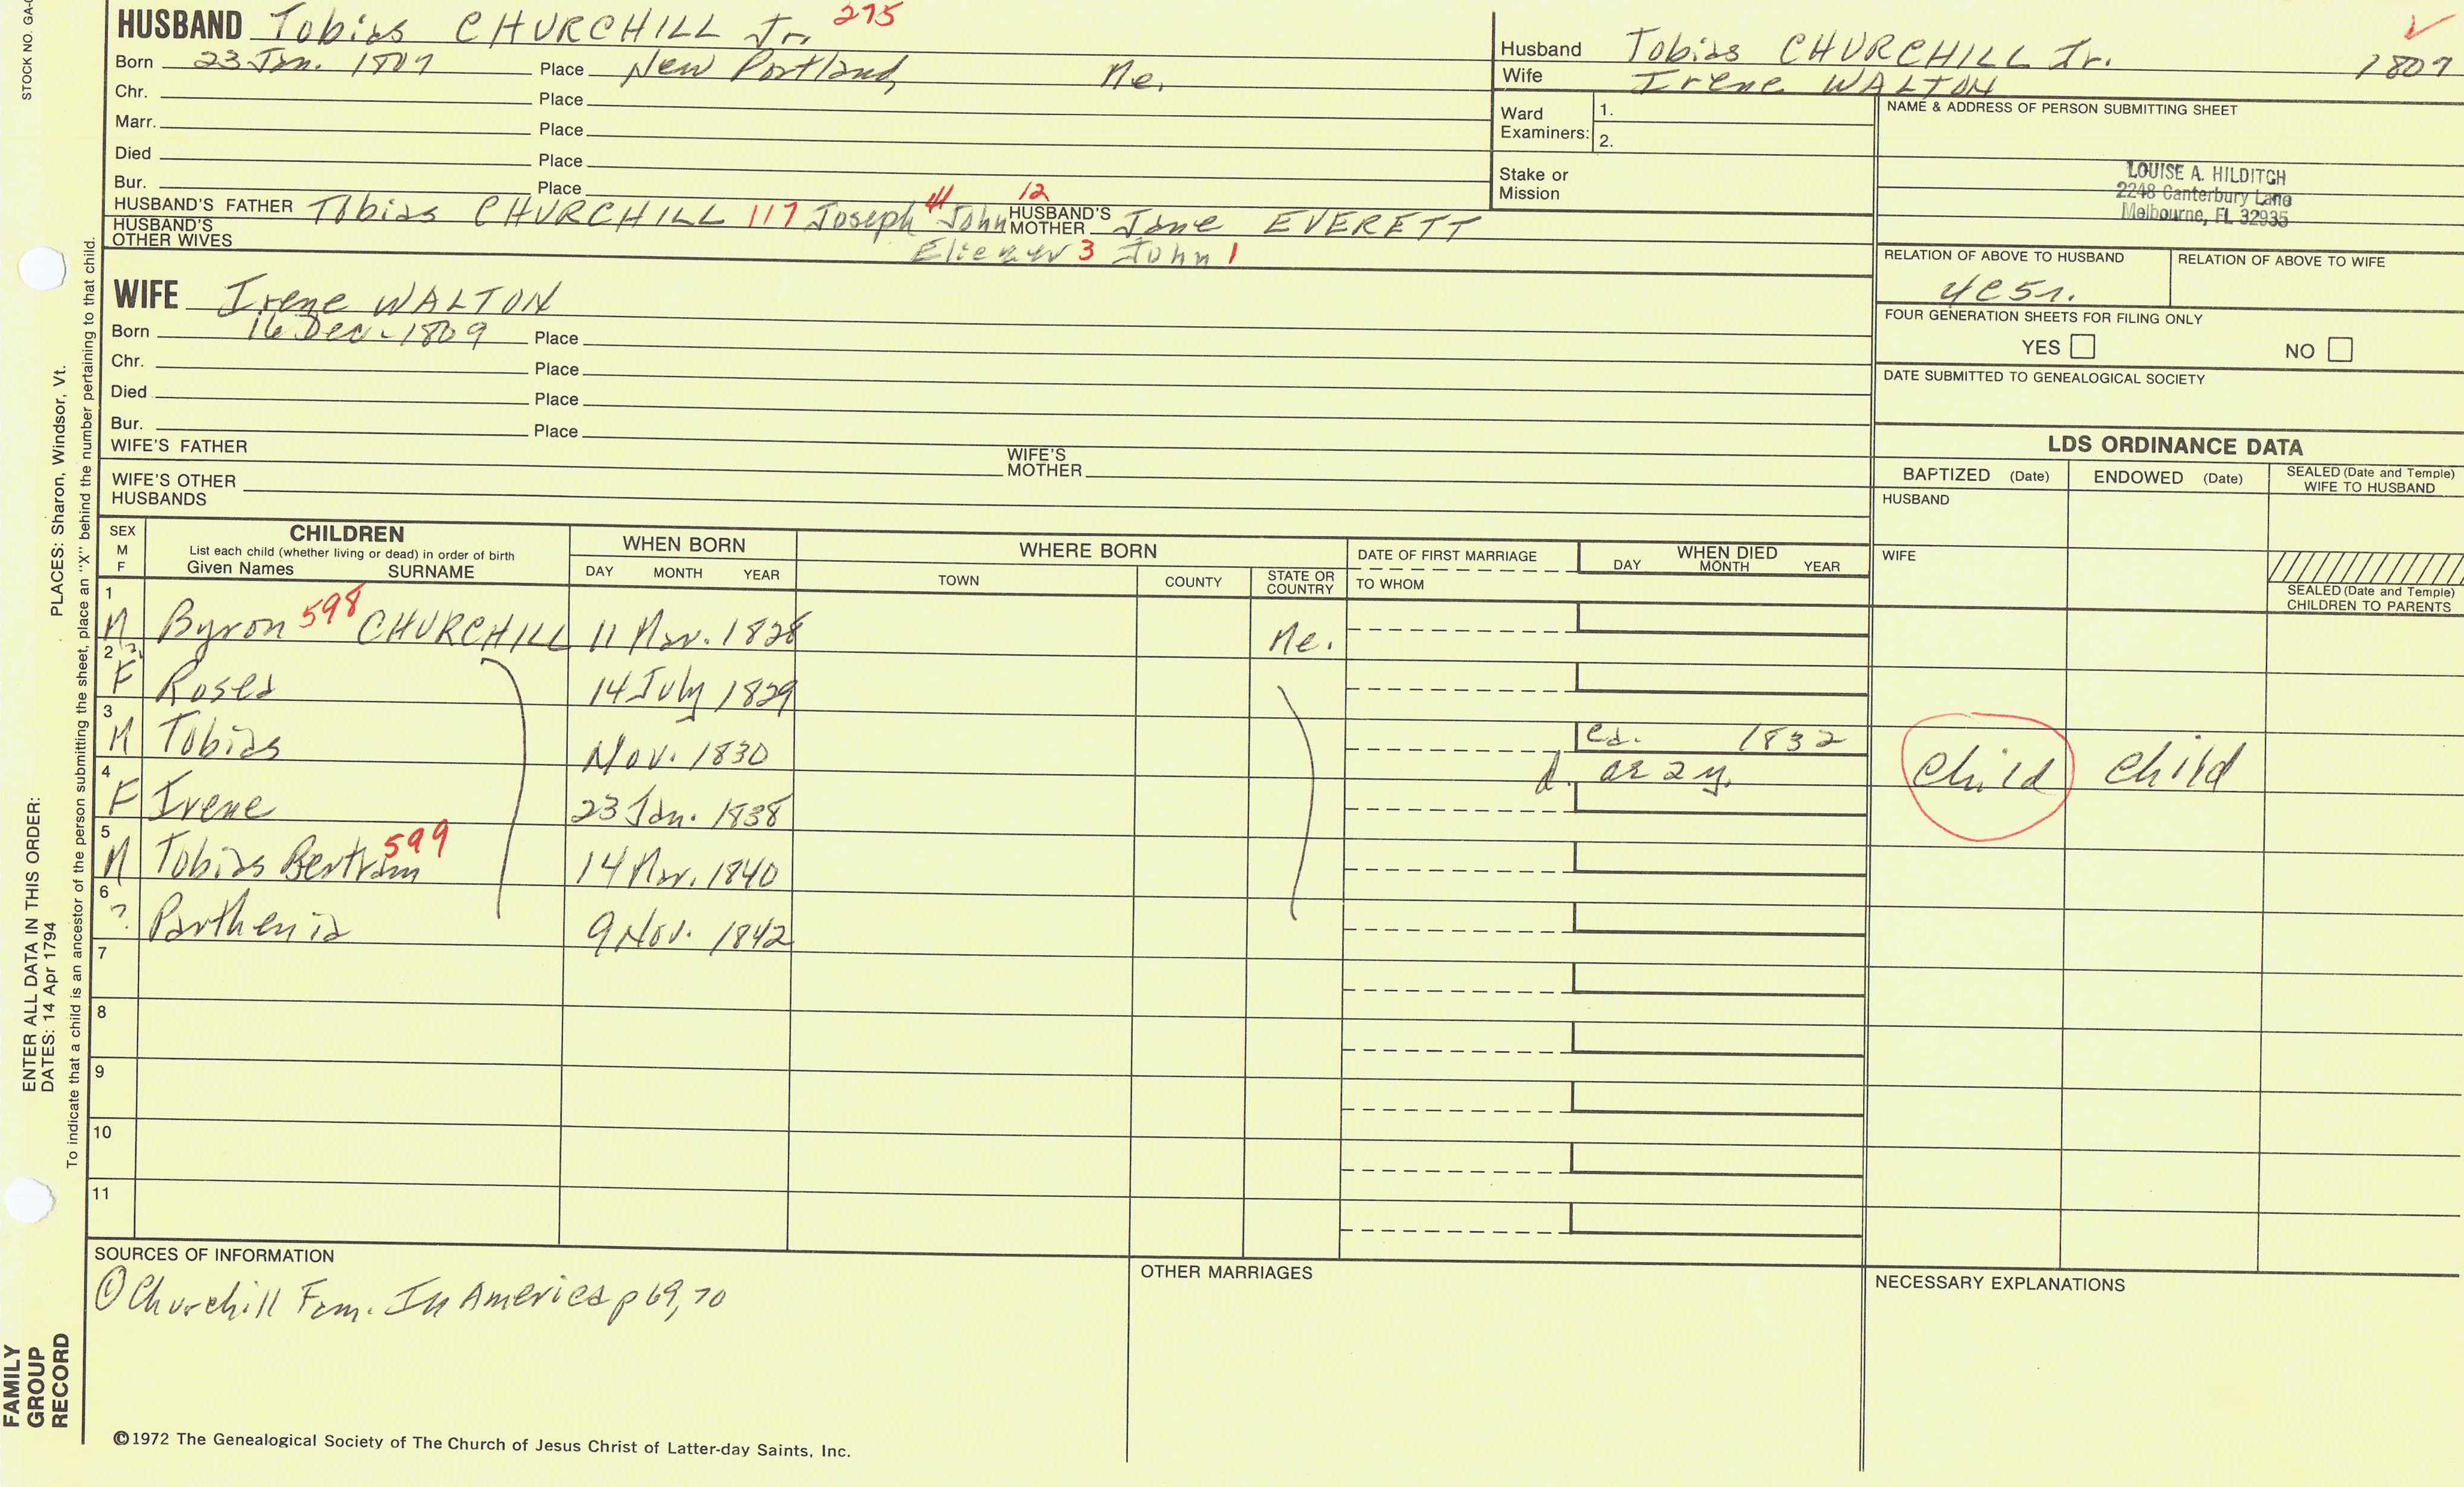 STOCK NO. GA-
HUSBAND Tobias CHURCHILL Jr. 275
Born 23 Jan. 1807 Place New Portland, Me.
Chr. Place
Marr. Place
Died Place
Bur. Place
HUSBAND'S FATHER Tobias CHURCHILL 117 Joseph 41 John 12 HUSBAND'S MOTHER Jane EVERETT
HUSBAND'S OTHER WIVES Eliezer 3 John 1
WIFE Irene WALTON
Born 16 Dec. 1809 Place
Chr. Place
Died Place
Bur. Place
WIFE'S FATHER WIFE'S MOTHER
WIFE'S OTHER HUSBANDS
Husband Tobias CHURCHILL Jr. 1807
Wife Irene WALTON
Ward Examiners: 1.
2.
Stake or Mission
NAME & ADDRESS OF PERSON SUBMITTING SHEET
LOUISE A. HILDITCH
2248 Canterbury Lane
Melbourne, FL 32935
RELATION OF ABOVE TO HUSBAND RELATION OF ABOVE TO WIFE
4c5r.
FOUR GENERATION SHEETS FOR FILING ONLY
YES NO
DATE SUBMITTED TO GENEALOGICAL SOCIETY
LDS ORDINANCE DATA
BAPTIZED (Date) ENDOWED (Date) SEALED (Date and Temple) WIFE TO HUSBAND
HUSBAND
WIFE
SEALED (Date and Temple) CHILDREN TO PARENTS
SEX M F CHILDREN
List each child (whether living or dead) in order of birth
Given Names SURNAME
WHEN BORN
DAY MONTH YEAR
WHERE BORN
TOWN COUNTY STATE OR COUNTRY
DATE OF FIRST MARRIAGE
TO WHOM
WHEN DIED
DAY MONTH YEAR
1 M Byron 598 CHURCHILL 11 Mar. 1828 Me.
2 F Rosea 14 July 1829
3 M Tobias Nov. 1830 ca. 1832
d. ae 2 y. child child
4 F Irene 23 Jan. 1838
5 M Tobias Bertram 599 14 Mar. 1840
6 ? Parthenia 9 Nov. 1842
7
8
9
10
11
SOURCES OF INFORMATION
① Churchill Fam. In America p 69, 70
OTHER MARRIAGES
NECESSARY EXPLANATIONS
©1972 The Genealogical Society of The Church of Jesus Christ of Latter-day Saints, Inc.
FAMILY GROUP RECORD
ENTER ALL DATA IN THIS ORDER:
DATES: 14 Apr 1794
PLACES: Sharon, Windsor, Vt.
To indicate that a child is an ancestor of the person submitting the sheet, place an "X" behind the number pertaining to that child.